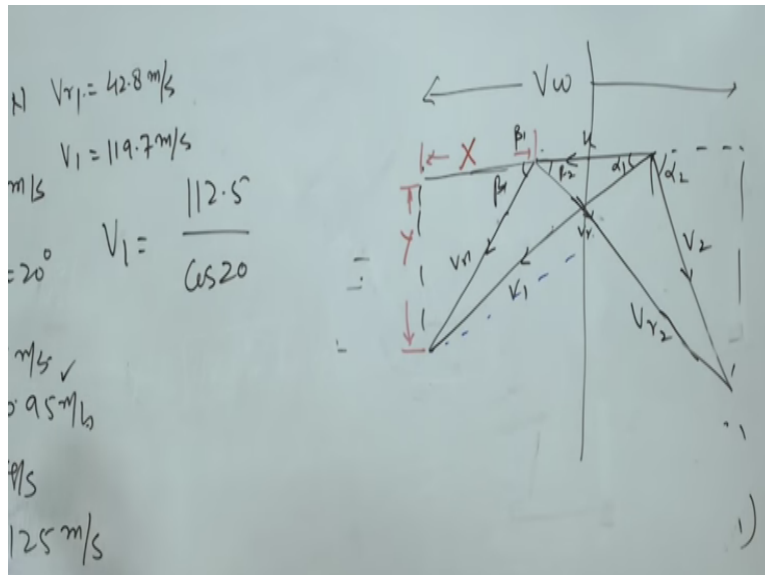 N Vr1 = 42.8 m/s
V1 = 119.7 m/s
m/s
V1 = 112.5 / Cos20
= 20°
m/s ✓
0.95 m/s
m/s
125 m/s
Vw
X
β1
u
β1
β2
α1
α2
Y
Vr1
V1
Vr
V2
Vr2
1)